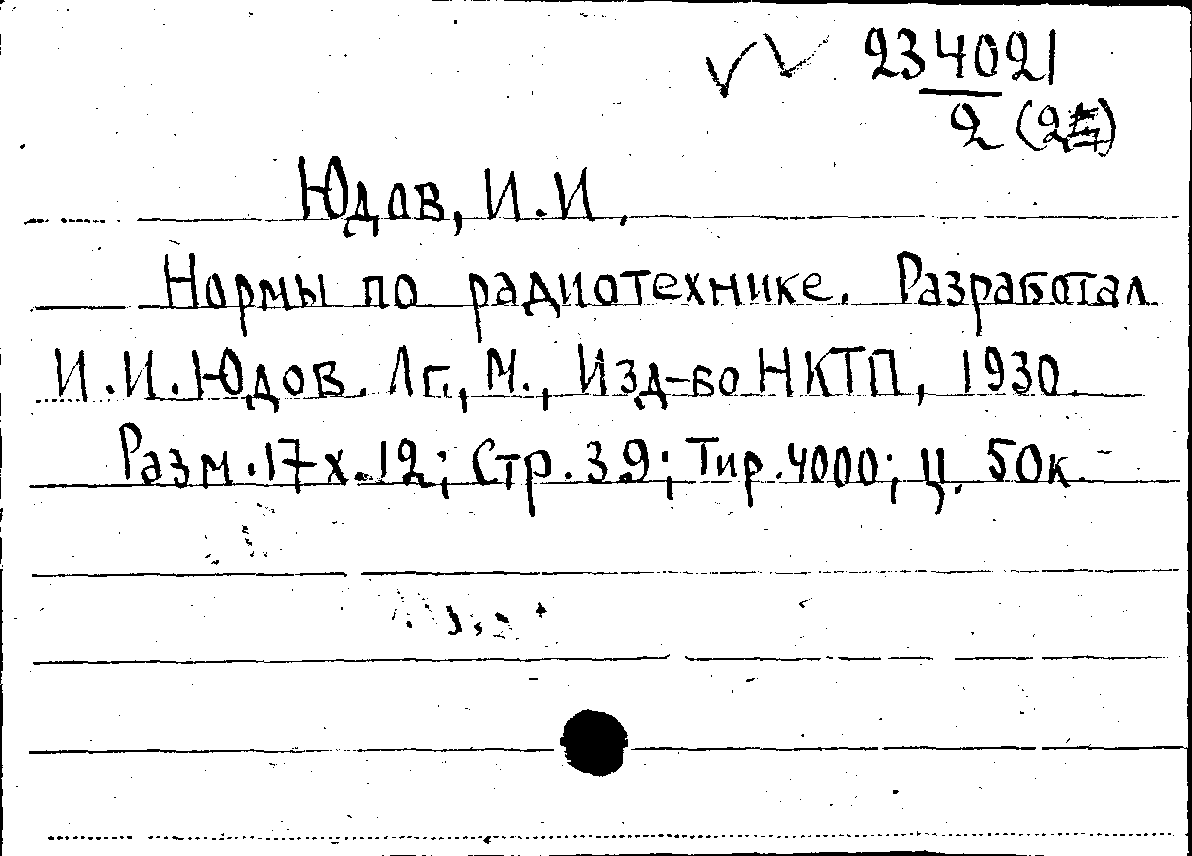 234021
2 (2
Юдов, И.И.
Нормы по радиотехнике. Разработал
И.И.Юдов. Лг., М., Изд-во НКТП, 1930.
Разм.17х.12; Стр.39; Тир.4000; ц. 50к.